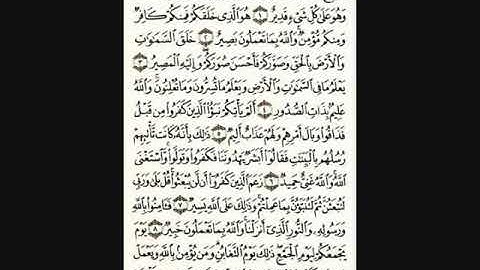 وَهُوَ عَلَىٰ كُلِّ شَىْءٍ قَدِيرٌ ١ هُوَ ٱلَّذِى خَلَقَكُمْ فَمِنكُمْ كَافِرٌ
وَمِنكُم مُّؤْمِنٌ وَٱللَّهُ بِمَا تَعْمَلُونَ بَصِيرٌ ٢ خَلَقَ ٱلسَّمَٰوَٰتِ
وَٱلْأَرْضَ بِٱلْحَقِّ وَصَوَّرَكُمْ فَأَحْسَنَ صُوَرَكُمْ وَإِلَيْهِ ٱلْمَصِيرُ ٣
يَعْلَمُ مَا فِى ٱلسَّمَٰوَٰتِ وَٱلْأَرْضِ وَيَعْلَمُ مَا تُسِرُّونَ وَمَا تُعْلِنُونَ وَٱللَّهُ
عَلِيمٌۢ بِذَاتِ ٱلصُّدُورِ ٤ أَلَمْ يَأْتِكُمْ نَبَؤُا۟ ٱلَّذِينَ كَفَرُوا۟ مِن قَبْلُ
فَذَاقُوا۟ وَبَالَ أَمْرِهِمْ وَلَهُمْ عَذَابٌ أَلِيمٌ ٥ ذَٰلِكَ بِأَنَّهُۥ كَانَت تَّأْتِيهِمْ
رُسُلُهُم بِٱلْبَيِّنَٰتِ فَقَالُوٓا۟ أَبَشَرٌ يَهْدُونَنَا فَكَفَرُوا۟ وَتَوَلَّوا۟ وَّٱسْتَغْنَى
ٱللَّهُ وَٱللَّهُ غَنِىٌّ حَمِيدٌ ٦ زَعَمَ ٱلَّذِينَ كَفَرُوٓا۟ أَن لَّن يُبْعَثُوا۟ قُلْ بَلَىٰ وَرَبِّى
لَتُبْعَثُنَّ ثُمَّ لَتُنَبَّؤُنَّ بِمَا عَمِلْتُمْ وَذَٰلِكَ عَلَى ٱللَّهِ يَسِيرٌ ٧ فَـَٔامِنُوا۟ بِٱللَّهِ
وَرَسُولِهِۦ وَٱلنُّورِ ٱلَّذِىٓ أَنزَلْنَا وَٱللَّهُ بِمَا تَعْمَلُونَ خَبِيرٌ ٨ يَوْمَ
يَجْمَعُكُمْ لِيَوْمِ ٱلْجَمْعِ ذَٰلِكَ يَوْمُ ٱلتَّغَابُنِ وَمَن يُؤْمِنۢ بِٱللَّهِ وَيَعْمَلْ